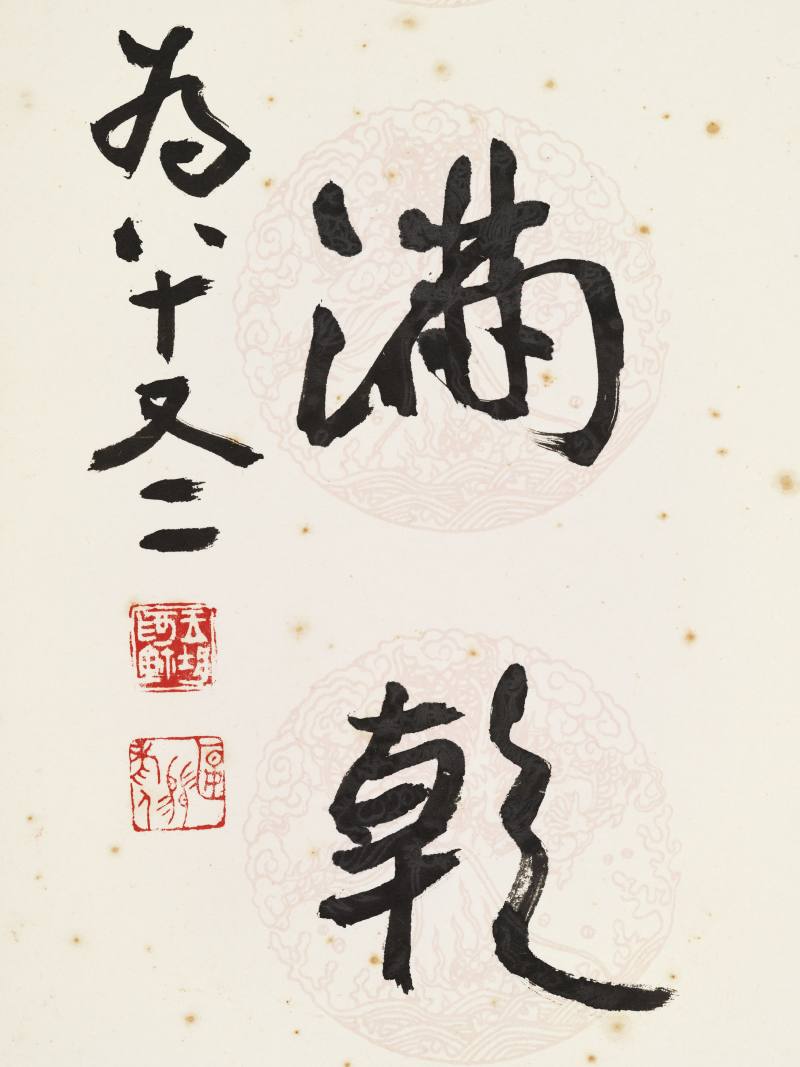 滿乾
為八十又二